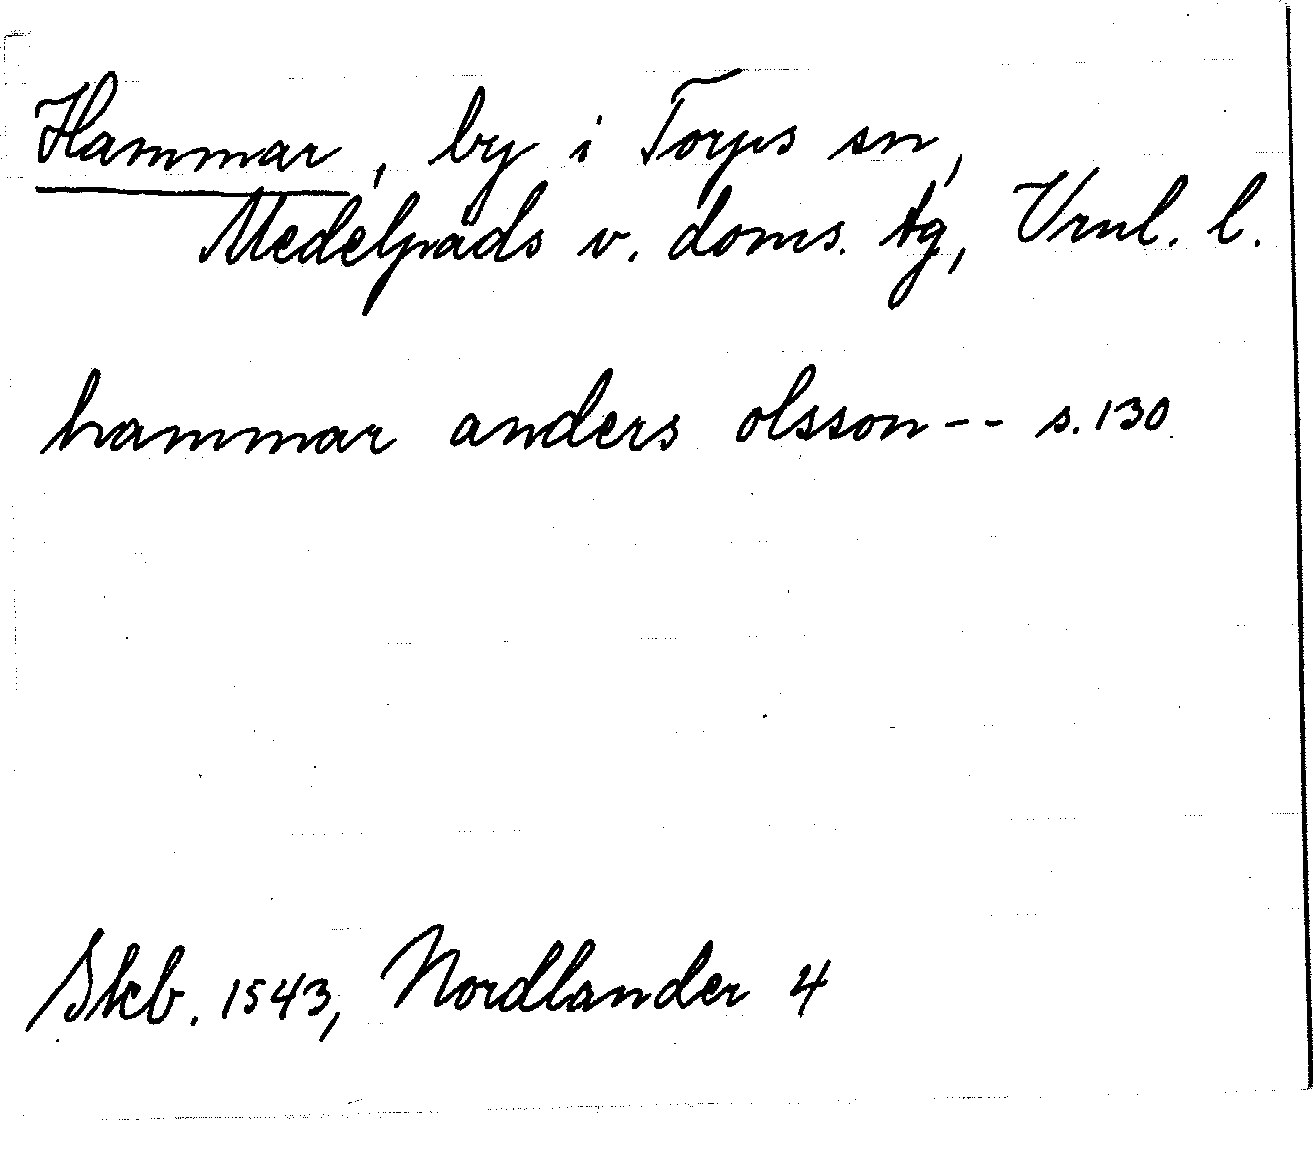 Hammar, by i Torps sn,
Medelpads v. doms. tg, Vrnl. l.
hammar anders olsson -- s. 130
Skb. 1543, Nordlander 4